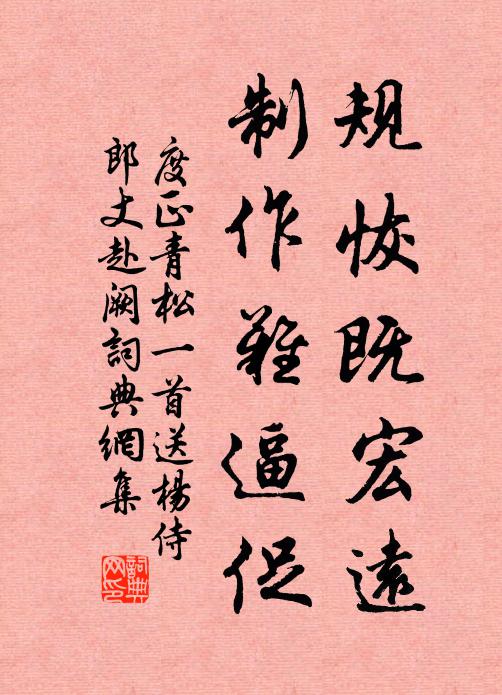 規恢既宏遠
制作難逼促
度正青松一首送楊侍
郎丈赴闕詞典網集
詞典
网印